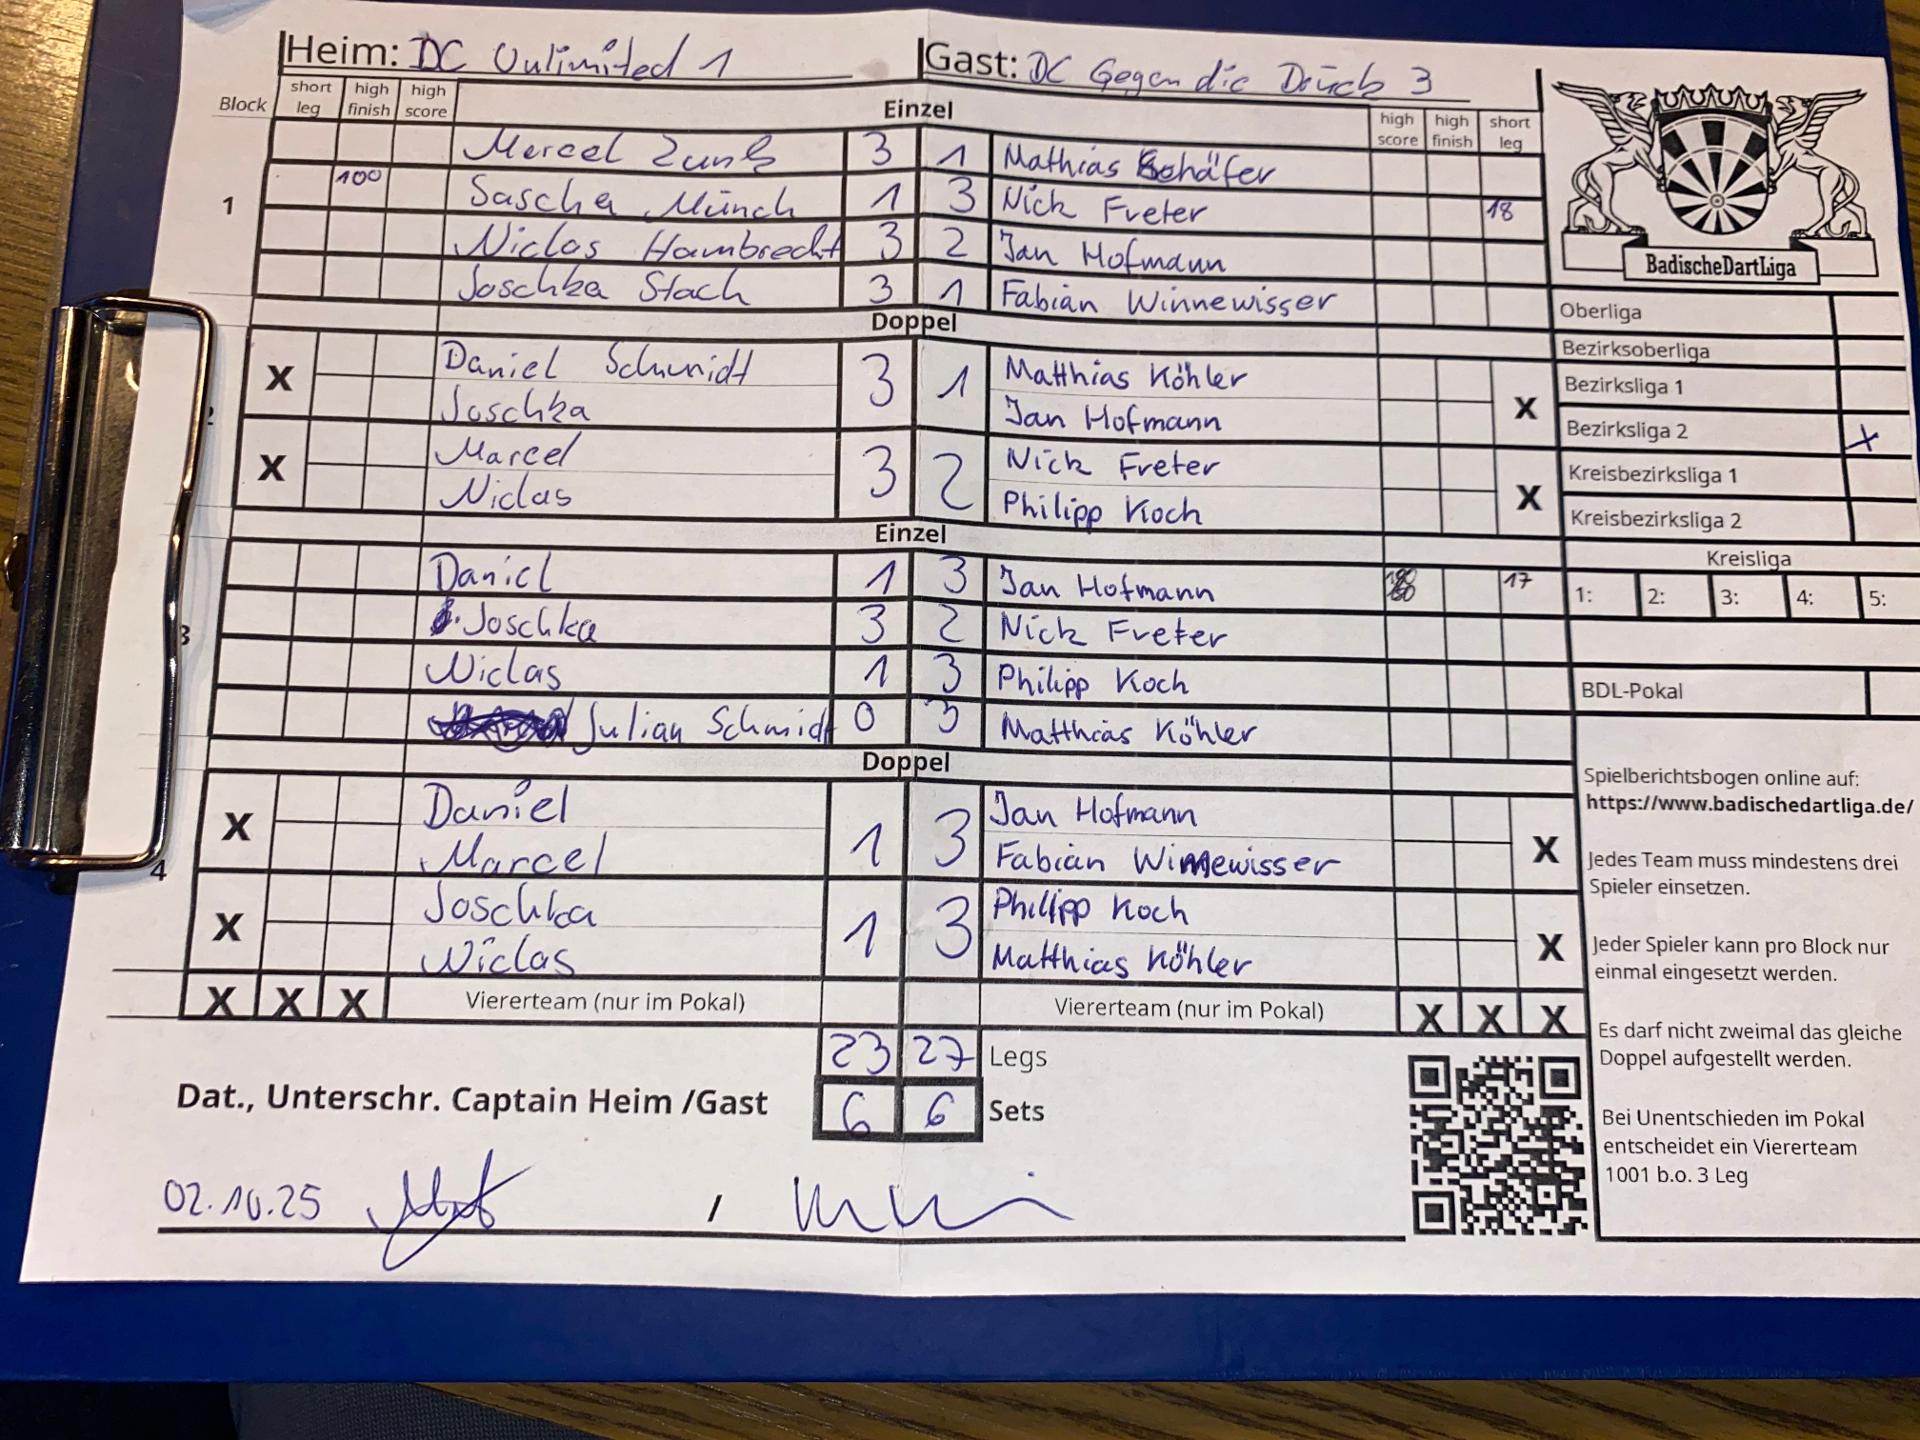 Heim: DC Unlimited 1 Gast: DC Gegen die Drück 3
Block short leg high finish high score Einzel high score high finish short leg
1
Marcel 3 1 Mathias Schäfer
100 Sascha Münch 1 3 Nick Freter 18
Niclas Hambrecht 3 2 Jan Hofmann
Joschka Stach 3 1 Fabian Winnewisser
Doppel
2
X Daniel Schmidt 3 1 Matthias Köhler X
Joschka Jan Hofmann
X Marcel 3 2 Nick Freter X
Niclas Philipp Koch
Einzel
3
Daniel 1 3 Jan Hofmann 17
Joschka 3 2 Nick Freter
Niclas 1 3 Philipp Koch
Julian Schmidt 0 3 Matthias Köhler
Doppel
4
X Daniel 1 3 Jan Hofmann X
Marcel Fabian Winnewisser
X Joschka 1 3 Philipp Koch X
Niclas Matthias Köhler
X X X Viererteam (nur im Pokal) Viererteam (nur im Pokal) X X X
23 27 Legs
6 6 Sets
Dat., Unterschr. Captain Heim /Gast
02.10.25 /
BadischeDartLiga
Oberliga
Bezirksoberliga
Bezirksliga 1
Bezirksliga 2 X
Kreisbezirksliga 1
Kreisbezirksliga 2
Kreisliga
1: 2: 3: 4: 5:
BDL-Pokal
Spielberichtsbogen online auf:
https://www.badischedartliga.de/
Jedes Team muss mindestens drei
Spieler einsetzen.
Jeder Spieler kann pro Block nur
einmal eingesetzt werden.
Es darf nicht zweimal das gleiche
Doppel aufgestellt werden.
Bei Unentschieden im Pokal
entscheidet ein Viererteam
1001 b.o. 3 Leg